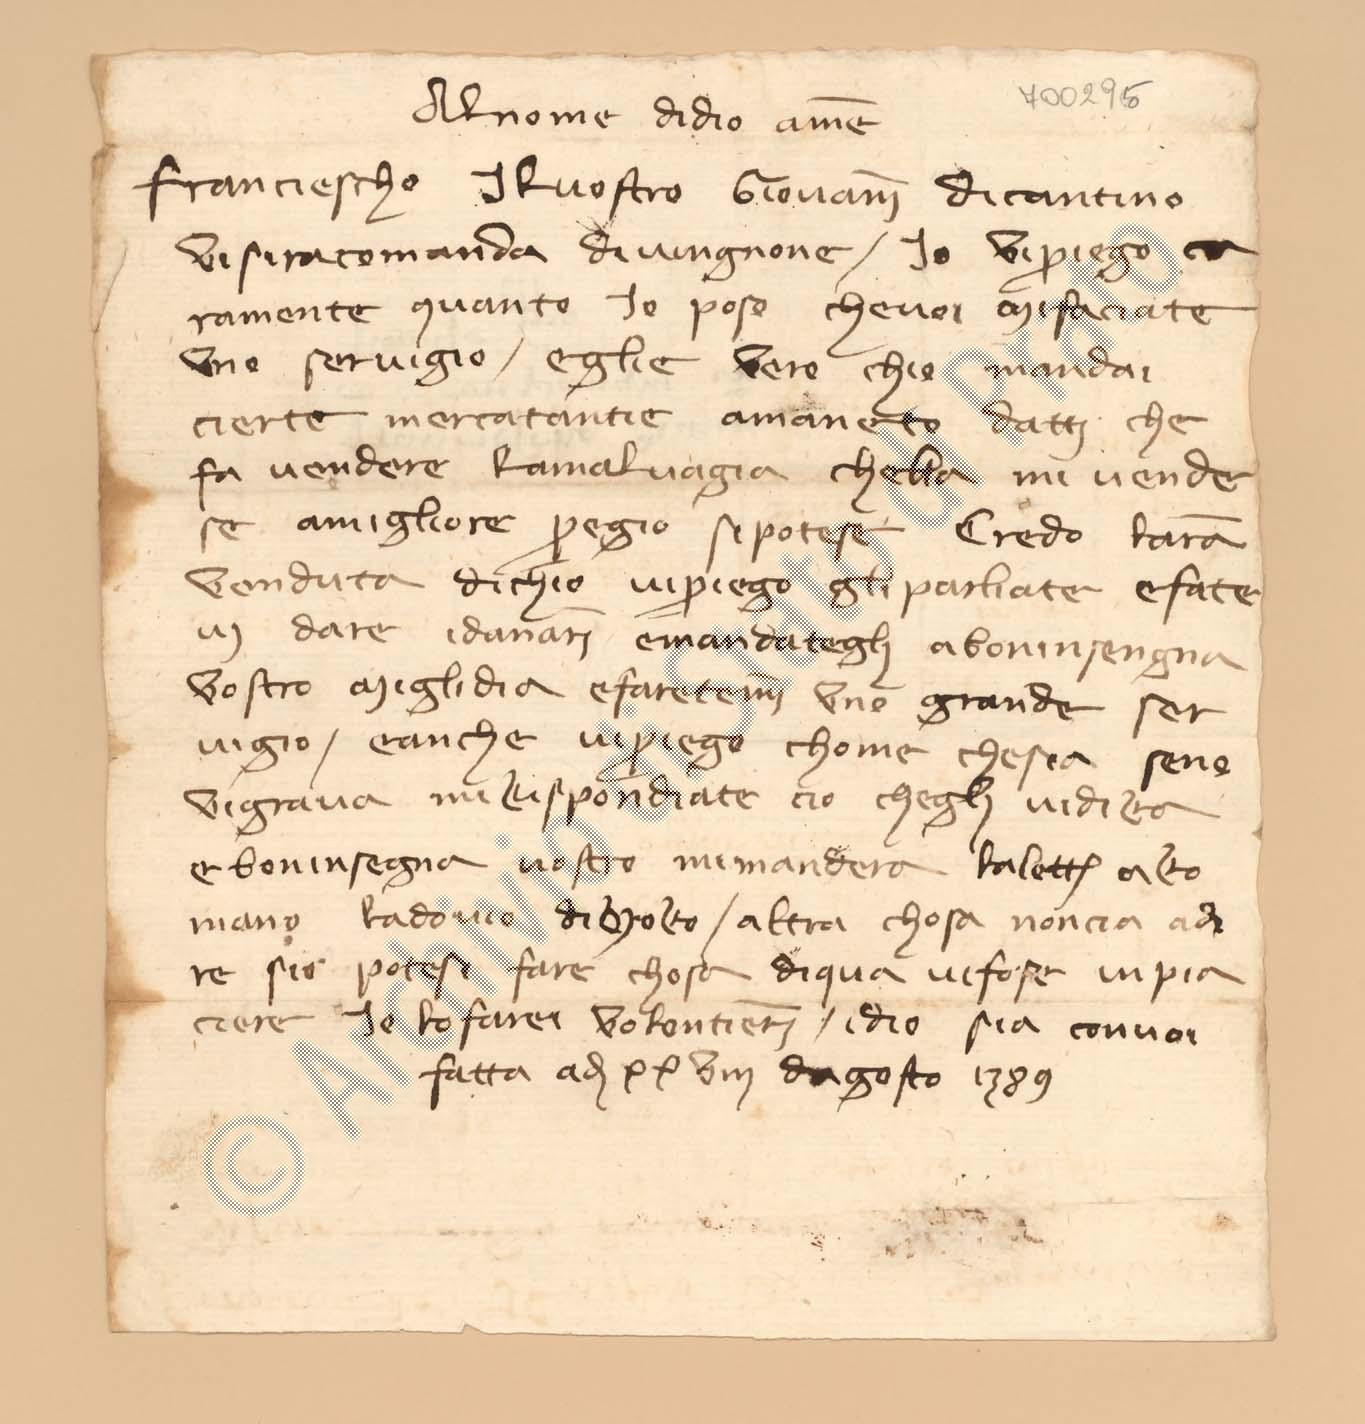 700295
Al nome didio ame
franciescho Il vostro Giovani dicantino
visiracomanda divingnone / Io vipriego ca
ramente quanto Io poso chevoi mifaciate
Uno servigio / eglie vero chio mandai
cierte mercatantie amaneto datti che
fa vendere lamalvagia chella mi vende
se amigliore pregio sipotese Credo larà
venduta dichio vipriego gli parliate efate
vi dare idanari emandategli aboninsengna
vostro miglidia efaretemi Uno grande ser
vigio / eanche vipriego chome chesia seno
vigrava mi rispondiate cio chegli vidirà
e boninsegna vostro mimandera la lett a
mano di / altra chosa noncia adi
re sio potesi fare chosa diqua vifose inpia
ciere Io lofarei volontieri / idio sia convoi
fatta adi xxviii dagosto 1389
© Archivio di Stato di Prato